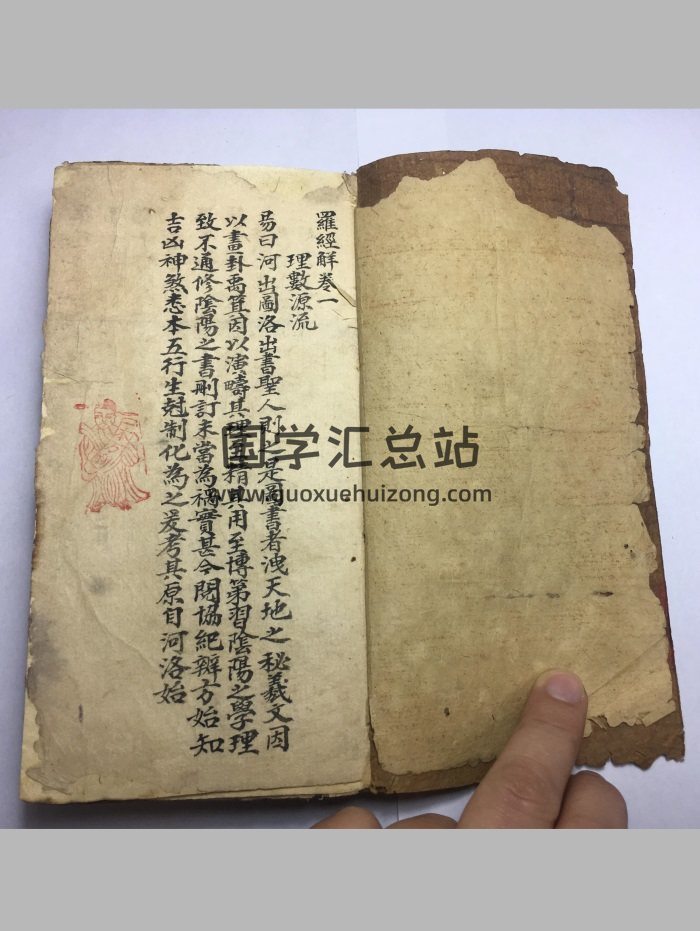 羅經解卷一
理數源流
易曰河出圖洛出書聖人則之是圖書者洩天地之秘羲文因
以畫卦禹箕因以演疇其理至精其用至博第習陰陽之學理
致不通修陰陽之書刪訂未當為禍實甚今閱協紀辧方始知
吉凶神煞悉本五行生尅制化為之爰考其原自河洛始
国学汇总站
www.guoxuehuizong.com